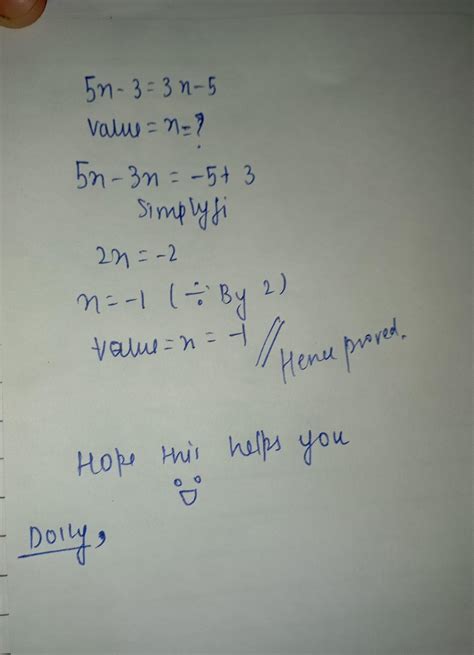 5x-3=3x-5
value=x=?
5x-3x=-5+3
Simplyfi
2x=-2
x=-1 (÷ By 2)
value=x=-1 // Hence proved.
Hope this helps you
Dolly,